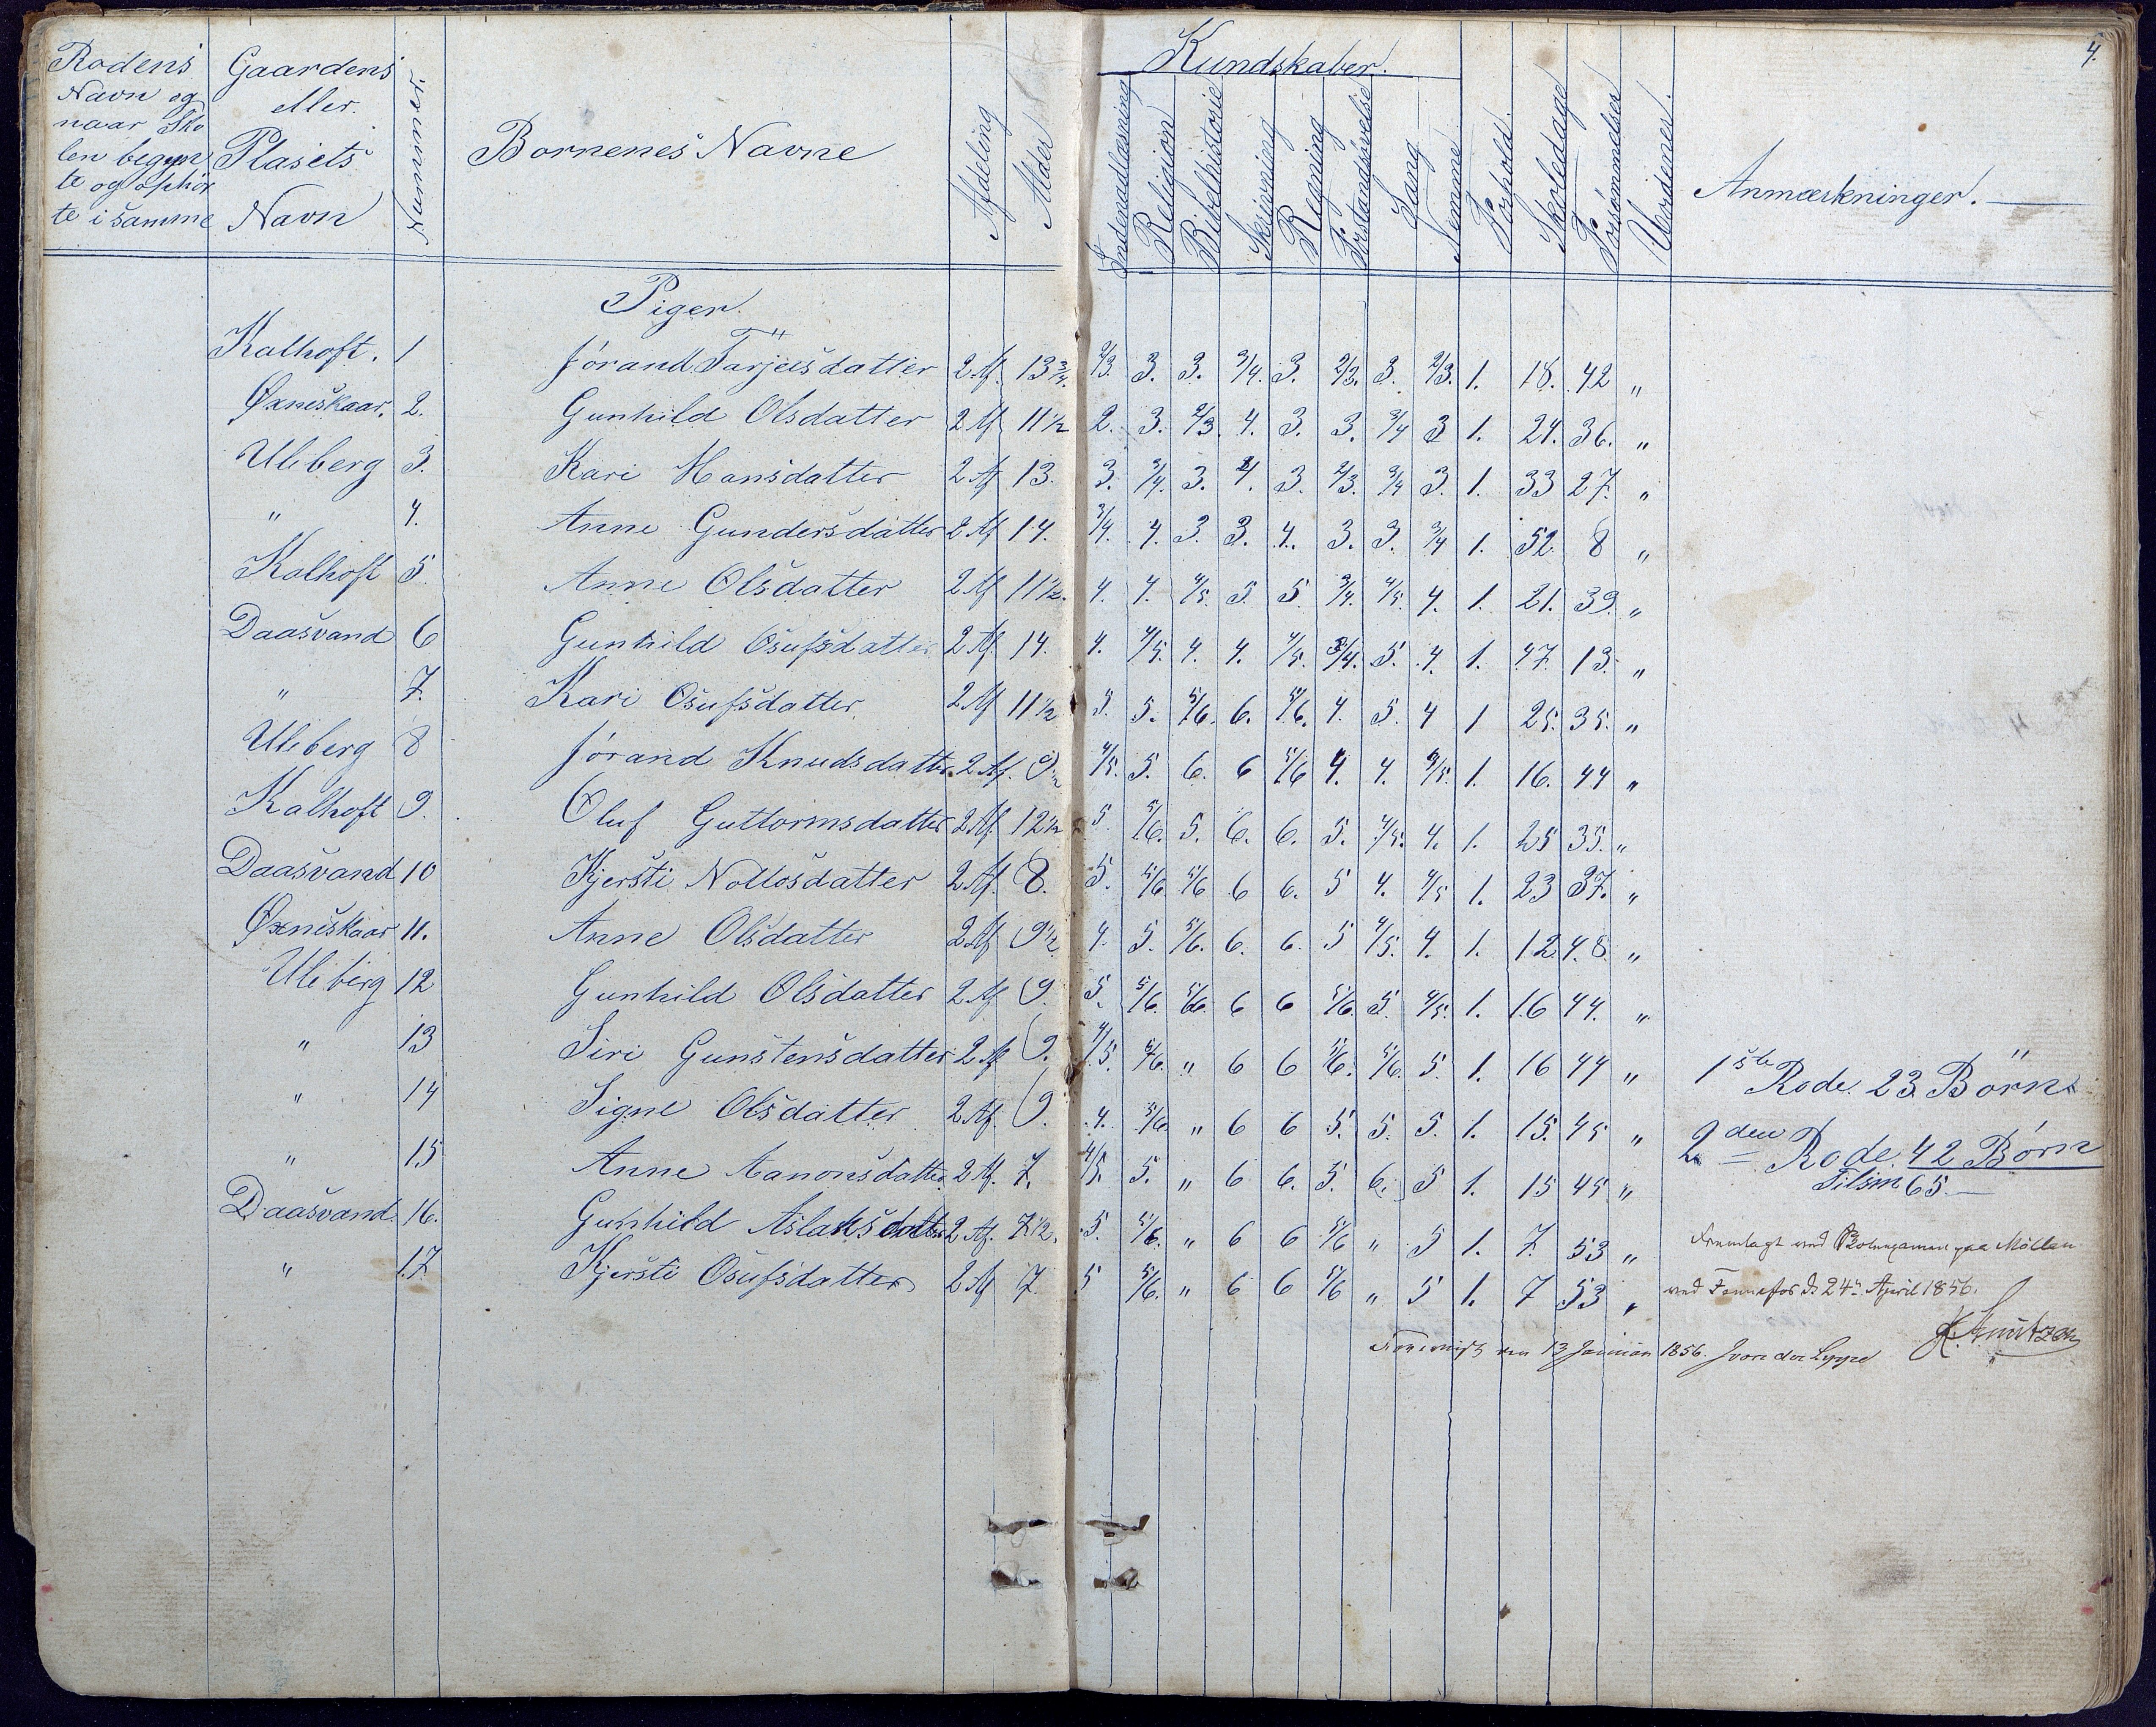 4.
Rodens Navn og naar Skolen begynte og ophörte i samme | Gaardens eller Plasets Navn | Nummer. | Bornenes Navne | Afdeling | Alder | Kundskaber. | Anmærkninger.
Indenadlæsning | Religion | Bibelhistorie | Skrivning | Regning | Forstandsøvelse | Sang | Nemme | Forhold. | Skoledage | Forsømmelser | Uordener.
Piger.
Kalhoft. 1 Jórand Tarjeisdatter 2 Af. 13 3/4. 2/3. 3. 3. 3/4. 3. 2/3. 3. 2/3. 1. 18. 42 "
Øxneskaar. 2. Gunhild Olsdatter 2 Af 11 1/2 2. 3. 2/3. 4. 3. 3. 3/4 3 1. 24. 36. "
Uleberg 3. Kari Hansdatter 2 Af 13. 3. 3/4. 3. 4. 3. 2/3. 3/4 3. 1. 33 27. "
" 4. Anne Gundersdatter 2 Af 14. 3/4. 4. 3. 3. 4. 3. 3. 3/4 1. 52. 8 "
Kalhoft 5 Anne Olsdatter 2 Af 11 1/2. 4. 4. 4/5. 5. 5 3/4. 4/5. 4. 1. 21. 39. "
Daasvand 6 Gunhild Osufsdatter 2 Af. 14. 4. 4/5. 4. 4. 4/5. 3/4. 5. 4. 1. 47. 13. "
" 7. Kari Osufsdatter. 2 Af 11 1/2 5. 5. 5/6. 6. 5/6. 4. 5. 4 1 25. 35. "
Uleberg 8 Jórand Knudsdatter 2 Af. 9 1/2 4/5. 5. 6. 6 5/6 4. 4. 4/5. 1. 16. 44 "
Kalhoft 9. Oluf Guttormsdatter 2 Af. 12 1/2 5. 5/6. 5. 6. 6. 5. 4/5. 4. 1. 25 35. "
Daasvand 10 Kjersti Nottosdatter 2 Af. 8. 5. 5/6 5/6 6 6. 5 4. 4/5 1. 23 37. "
Øxneskaar 11. Anne Olsdatter 2 Af 9 1/2 4. 5. 5/6. 6. 6. 5 4/5. 4. 1. 12 48. "
Uleberg 12 Gunhild Olsdatter 2 Af 9. 5. 5/6. 5/6. 6 6 5/6. 5. 4/5. 1. 16 44. "
" 13 Siri Gunstensdatter 2 Af 9. 4/5. 5/6. " 6 6 5/6. 5/6. 5. 1. 16 44 "
" 14 Signe Olsdatter 2 Af. 9. 4. 5/6. " 6 6 5. 5. 5. 1. 15. 45 "
" 15 Anne Aanonsdatter 2 Af. 7. 4/5. 5. " 6 6. 5. 6. 5 1. 15 45 "
Daasvand. 16. Gunhild Aslaksdatter 2 Af. 7 1/2. 5. 5/6. " 6 6 5/6 " 5 1. 7. 53 "
" 17. Kjersti Osufsdatter 2 Af 7. 5 5/6. " 6 6 5/6 " 5 1. 7 53 "
1ste Rode. 23 Börn
2den Rode. 42 Börn
Tilsm 65.
Fremlagt ved paa Möllen
ved Fennefos d 24de April 1856.
den 13 Januar 1856.
K. Knutzen